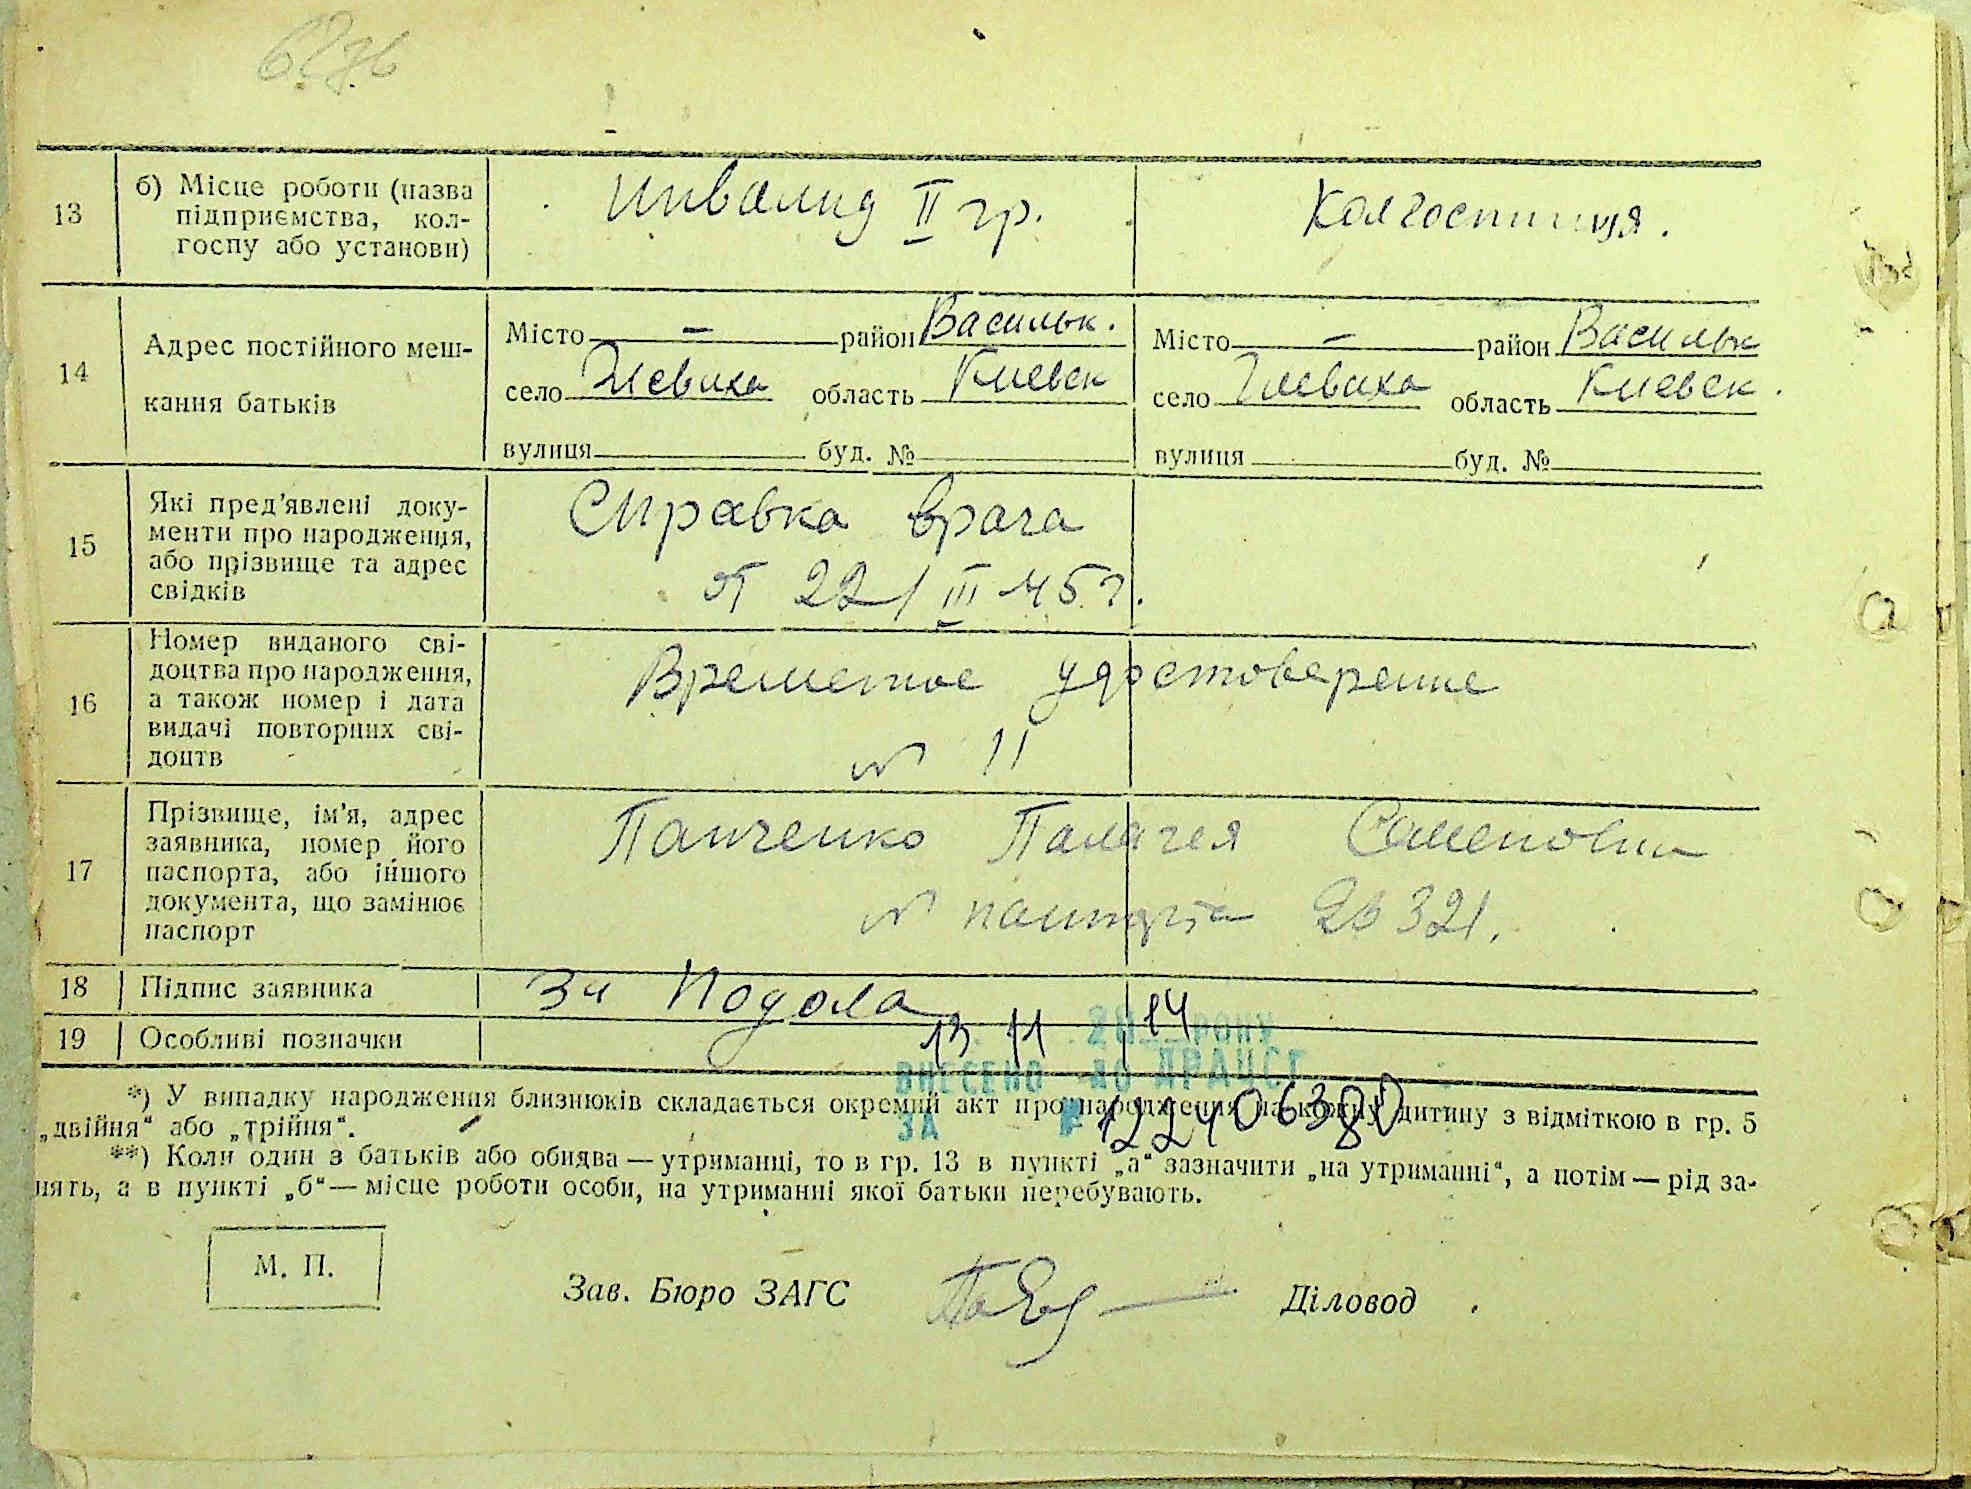 13 б) Місце роботи (назва підприємства, колгоспу або установи)
Инвалид II гр.
Колгоспниця.
14 Адрес постійного мешкання батьків
Місто — район Васильк.
село Глеваха область Киевск
вулиця буд. №
Місто — район Васильк
село Глеваха область Киевск.
вулиця буд. №
15 Які пред'явлені документи про народження, або прізвище та адрес свідків
Справка врача
от 22/III 45 г.
16 Номер виданого свідоцтва про народження, а також номер і дата видачі повторних свідоцтв
Временное удостоверение
№ 11
17 Прізвище, ім'я, адрес заявника, номер його паспорта, або іншого документа, що замінює паспорт
Панченко Палагея Семеновна
№ паспорта 26321.
18 Підпис заявника
19 Особливі позначки
13 11 2014 РОКУ
ВНЕСЕНО ДО ДРАЦСГ
ЗА №
*) У випадку народження близнюків складається окремий акт про народження на кожну дитину з відміткою в гр. 5
„двійня“ або „трійня“.
**) Коли один з батьків або обидва — утриманці, то в гр. 13 в пункті „а“ зазначити „на утриманні“, а потім — рід за-
нять, а в пункті „б“ — місце роботи особи, на утриманні якої батьки перебувають.
М. П.
Зав. Бюро ЗАГС
Діловод